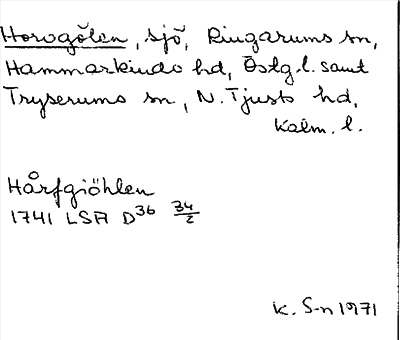 Horvgölen, sjö, Ringarums sn,
Hammarkinds hd, Östg. l. samt
Tryserums sn, N. Tjusts hd,
Kalm. l.
Hårfgiöhlen
1741 LSA D36 34/2
K. S-n 1971